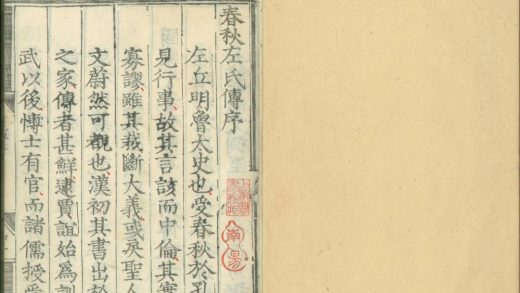 春秋左氏傳序
左丘明魯太史也受春秋於孔
見行事故其言該而中倫其實
寡謬雖其裁斷大義或戾聖人
文蔚然可觀也漢初其書出於
之家傳者甚鮮逮賈誼始爲訓
武以後博士有官而諸儒授受
南